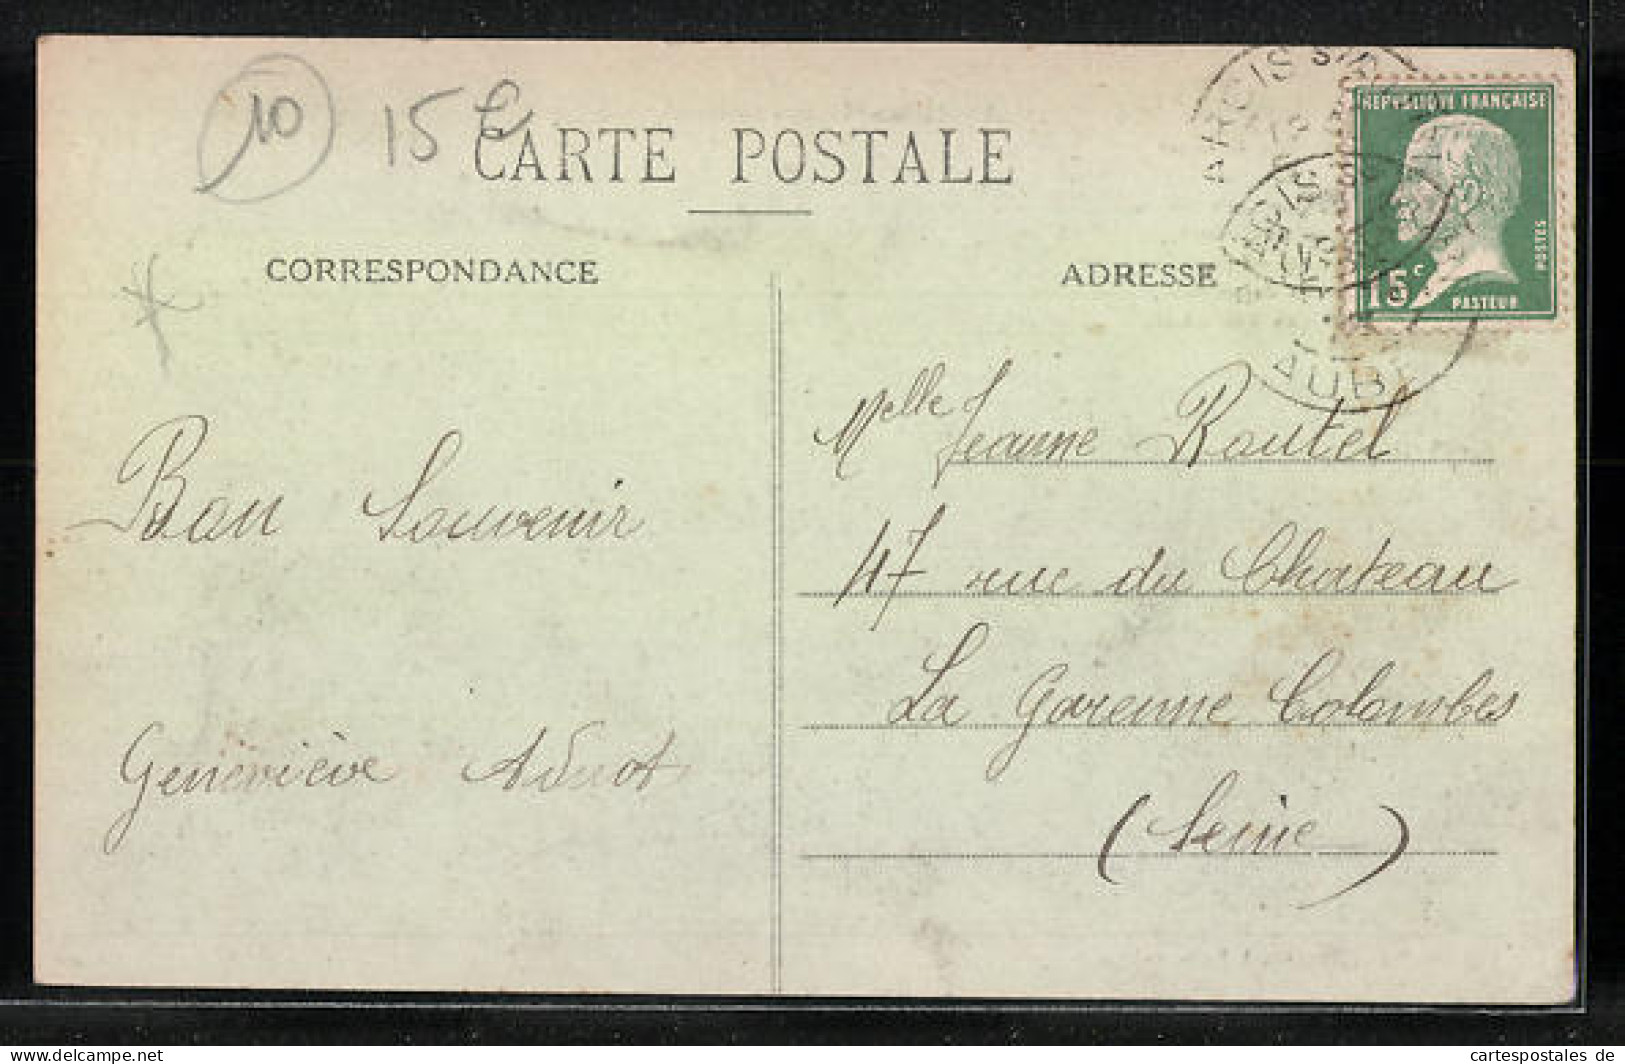 10
15 €
CARTE POSTALE
CORRESPONDANCE
ADRESSE
ARCIS S/
AUBE
REPVBLIQUE FRANÇAISE
POSTES
15c
PASTEUR
Bon Souvenir
Geneviève
Melle Jeanne Routel
47 rue du Chateau
La Garenne Colombes
(Seine)
www.delcampe.net
cartespostales de